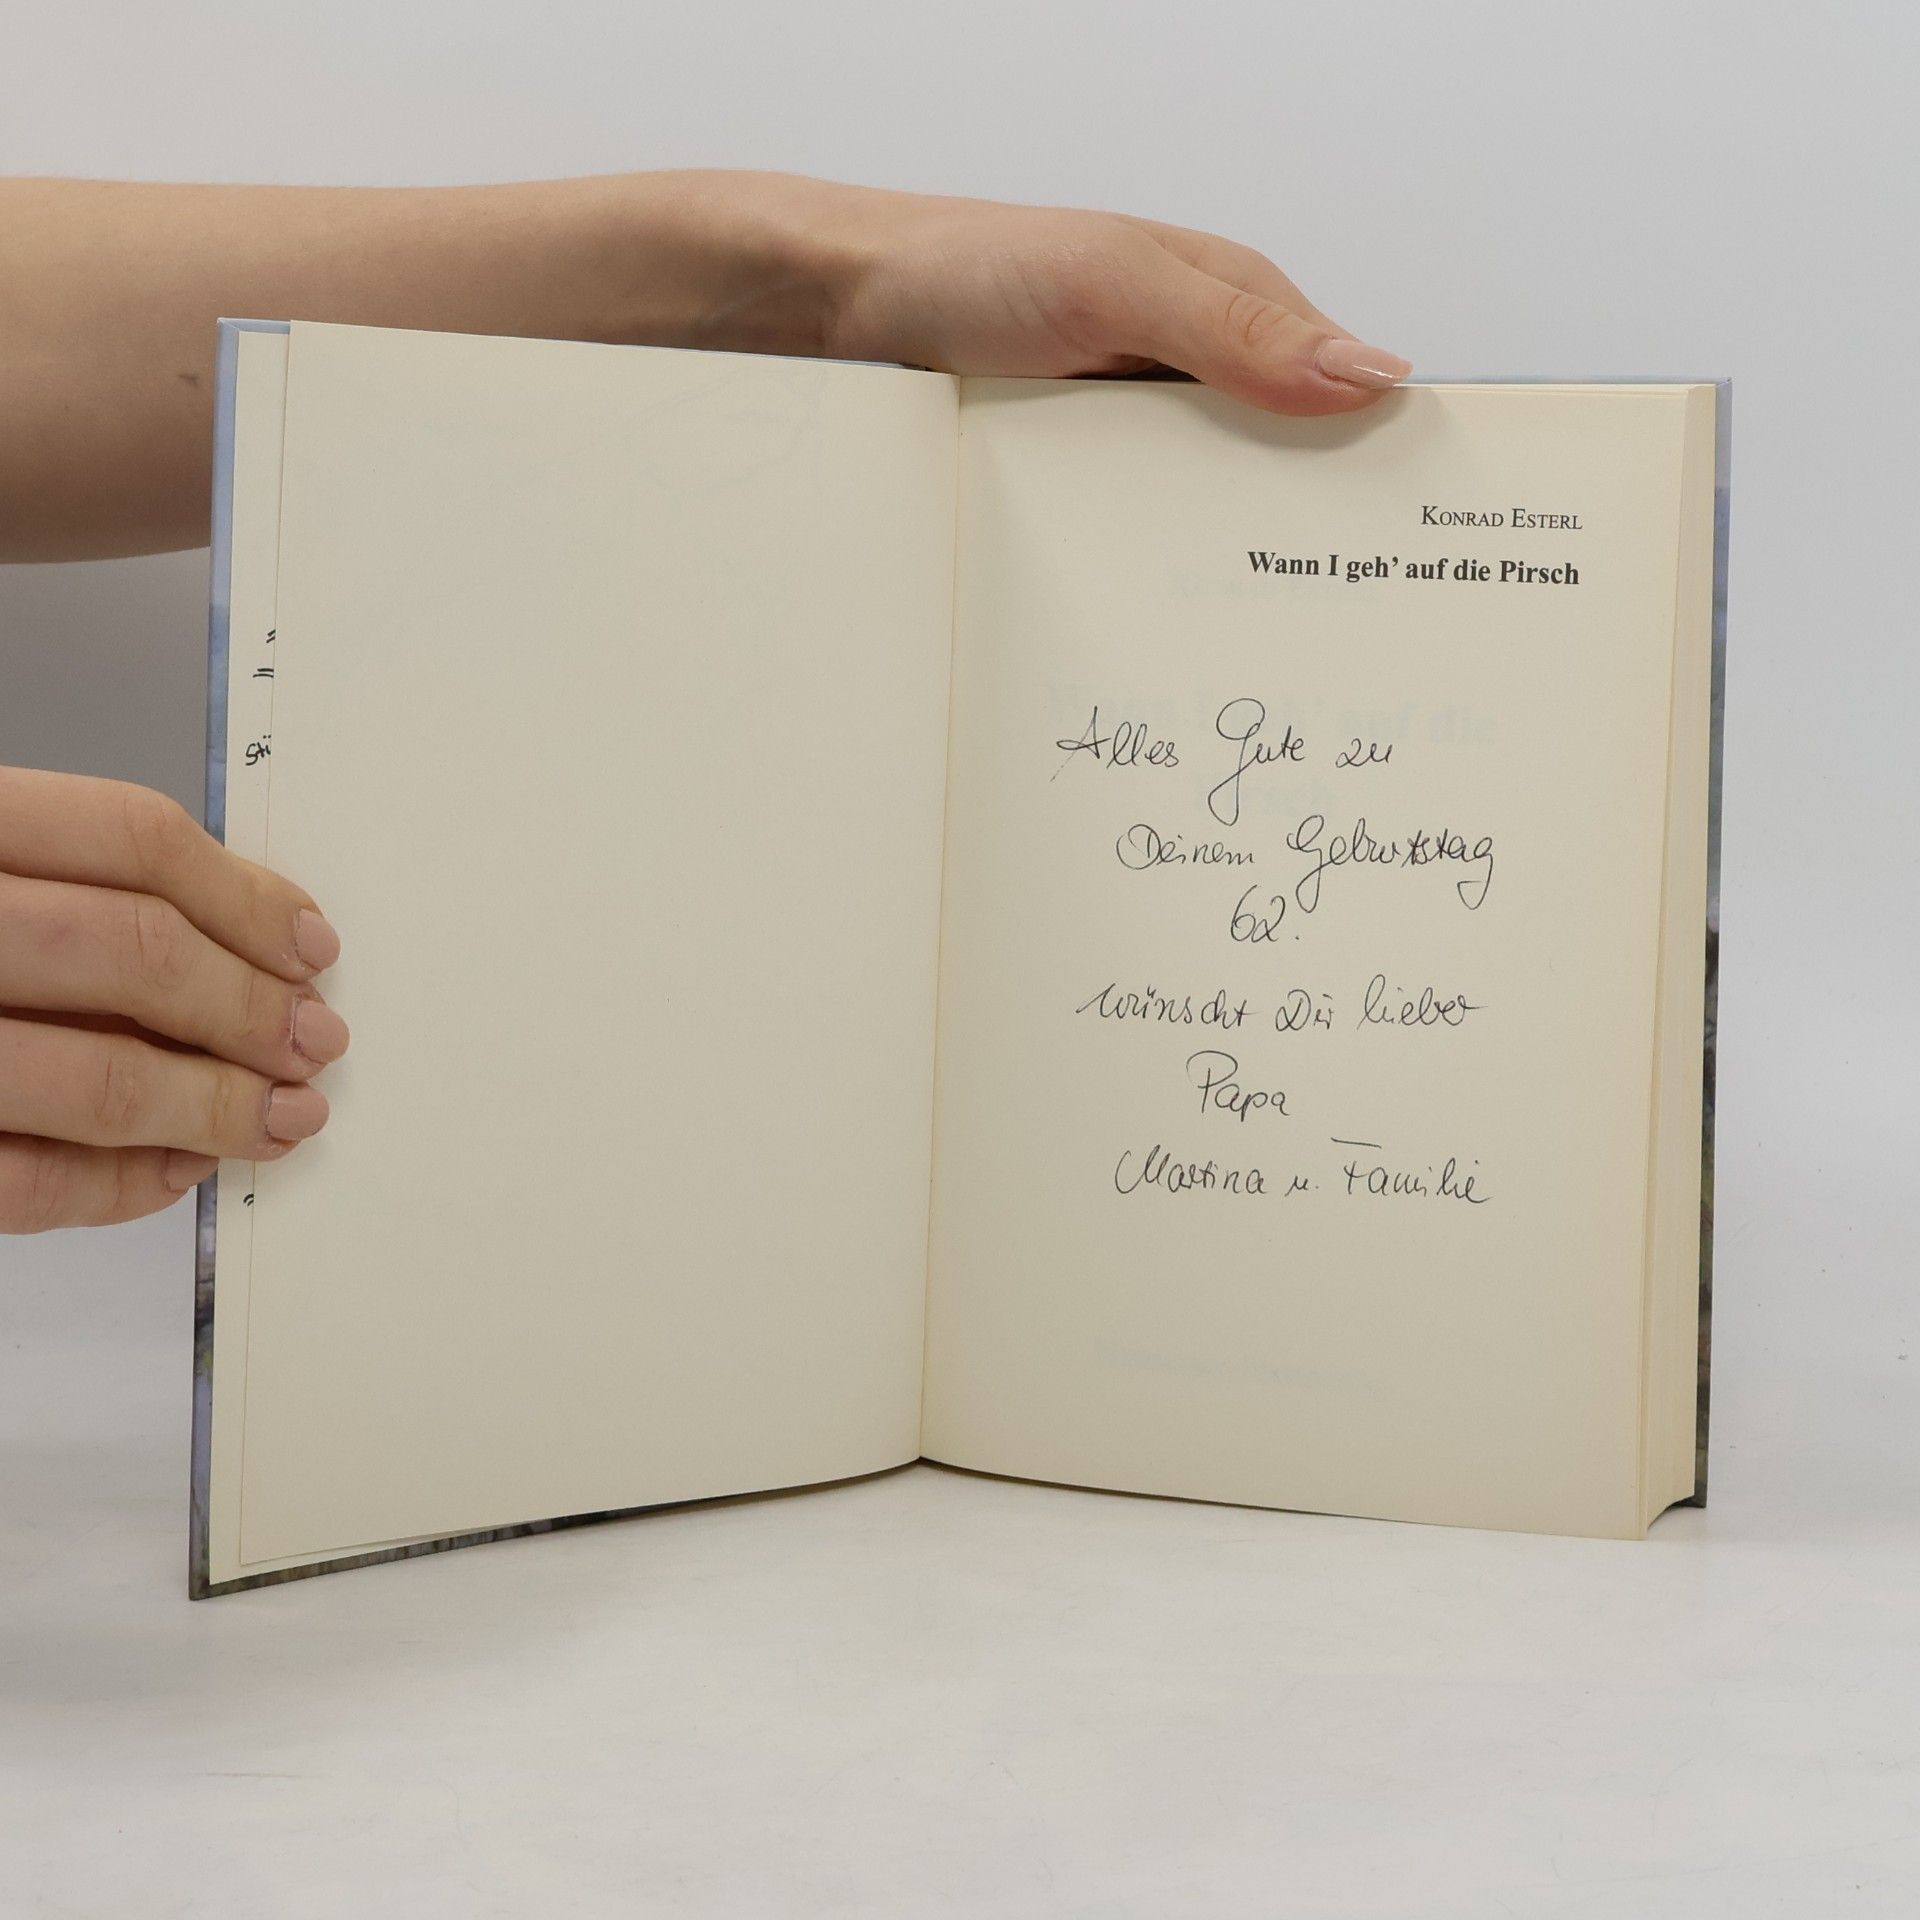 KONRAD ESTERL
Wann I geh' auf die Pirsch
Alles Gute zu
Deinem Geburtstag
62.
wünscht Dir lieber
Papa
Martina u. Familie